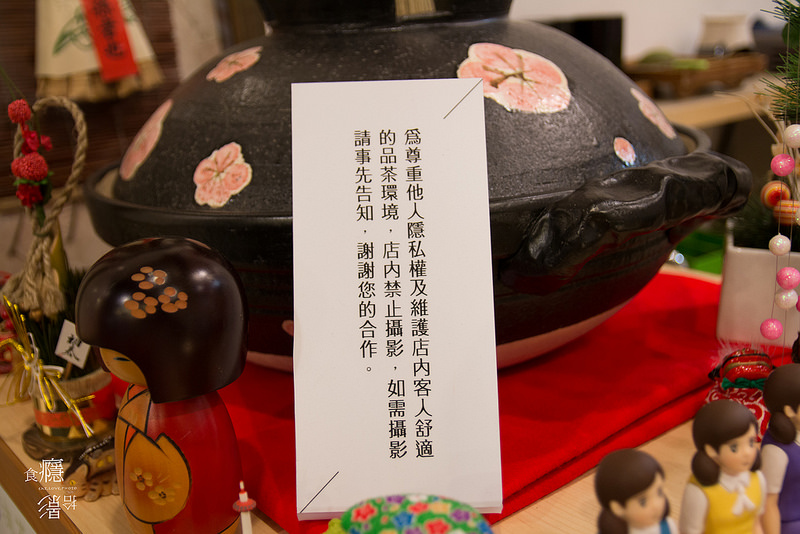 為尊重他人隱私權及維護店內客人舒適
的品茶環境，店內禁止攝影，如需攝影
請事先告知，謝謝您的合作。